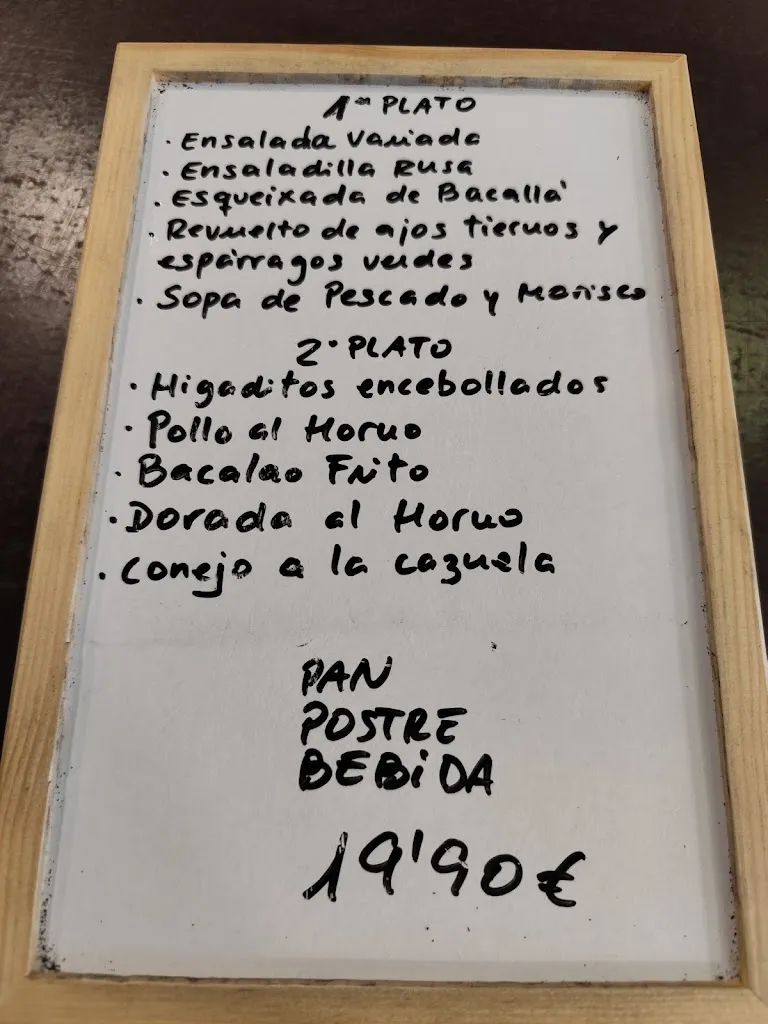 1er PLATO
· Ensalada Variada
· Ensaladilla Rusa
· Esqueixada de Bacallà
· Revuelto de ajos tiernos y
espárragos verdes
· Sopa de Pescado y Marisco
2º PLATO
· Higaditos encebollados
· Pollo al Horno
· Bacalao Frito
· Dorada al Horno
· Conejo a la cazuela
PAN
POSTRE
BEBiDA
19'90€